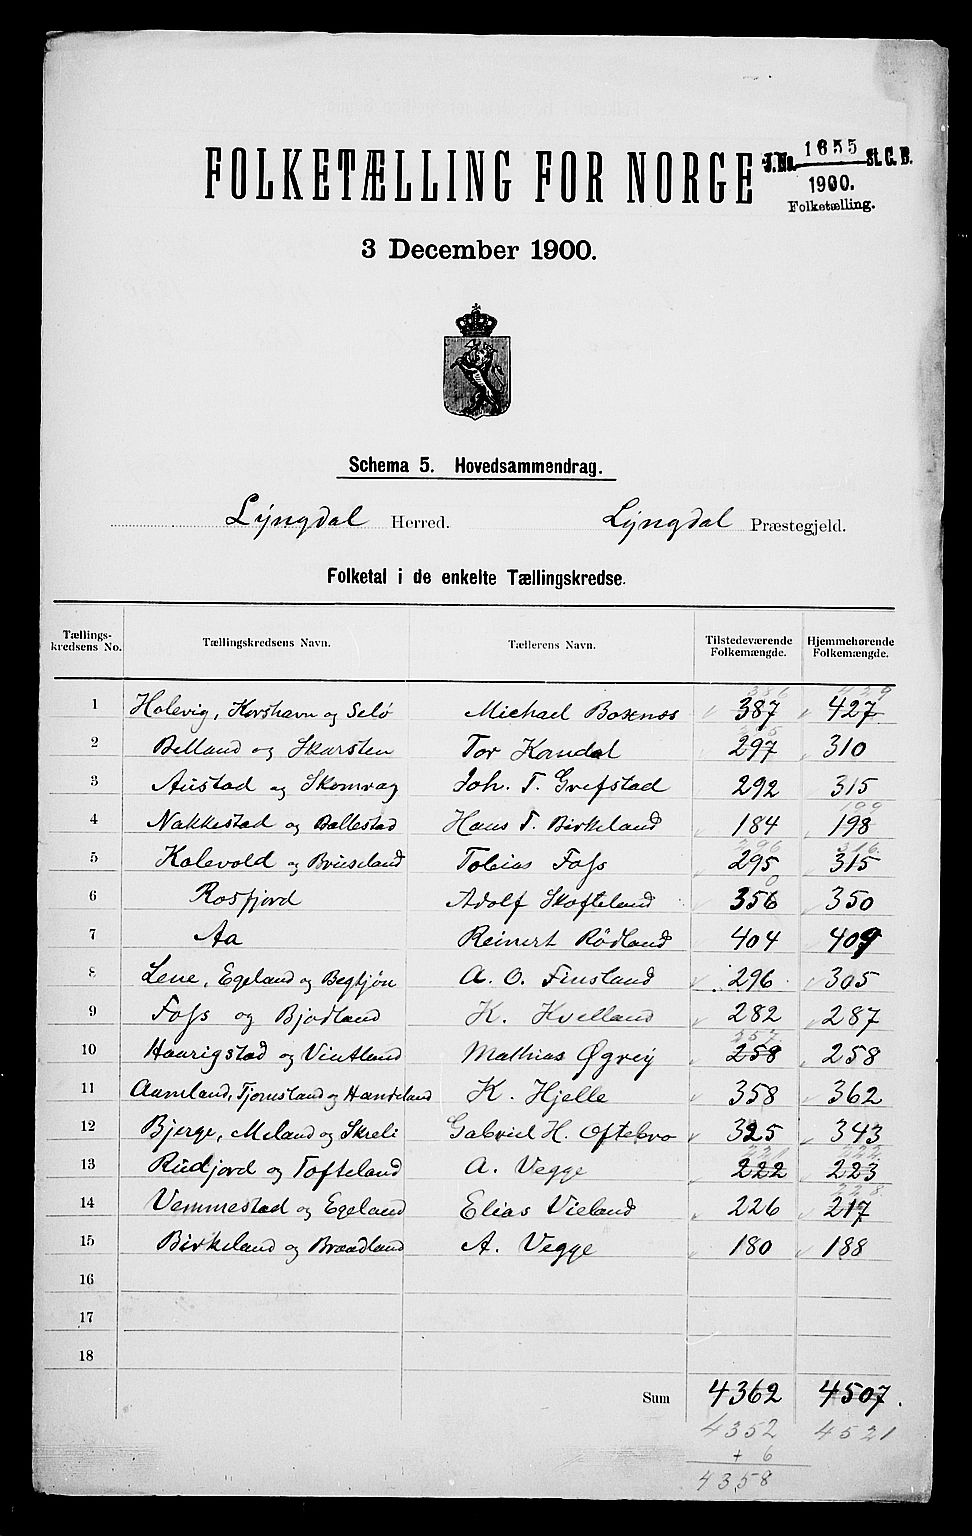 FOLKETÆLLING FOR NORGE
J.No. 1655 St. C. B.
1900.
Folketælling.
3 December 1900.
Schema 5. Hovedsammendrag.
Lyngdal Herred. Lyngdal Præstegjeld.
Folketal i de enkelte Tællingskredse.
Tællings-kredsens No. Tællingskredsens Navn. Tællerens Navn. Tilstedeværende Folkemængde. Hjemmehørende Folkemængde.
386 429
1 Holevig, Korshavn og Selö Michael Boxenss 387 427
295
2 Belland og Skarsten Tor Kandal 297 310
3 Austad og Skomrag Joh. T. Grefstad 292 315
199
4 Nakkestad og Ballestad Hans T. Birkeland 184 198
296 316
5 Kalevold og Bruseland Tobias Foss 295 315
0
6 Rosfjord Adolf Skofteland 356 350
7 Aa Reinert Rödland 404 409
8 Lene, Egeland og Begtjön A. O. Finsland 296 305
9 Foss og Bjodland K. Kvelland 282 287
257
10 Haurigstad og Vintland Mathias Øgrey 258 258
11 Aamland, Tjomsland og Handeland K. Hjelle 358 362
12 Bjerge, Meland og Skreli Gabriel H. Oftebro 325 343
221 222
13 Rudjord og Tofteland A. Vegge 222 223
228
14 Vemmestad og Egeland Elias Vieland 226 217
15 Birkeland og Braadland A. Vegge 180 188
16
17
18
Sum 4362 4507.
4352 4521
+ 6
4358